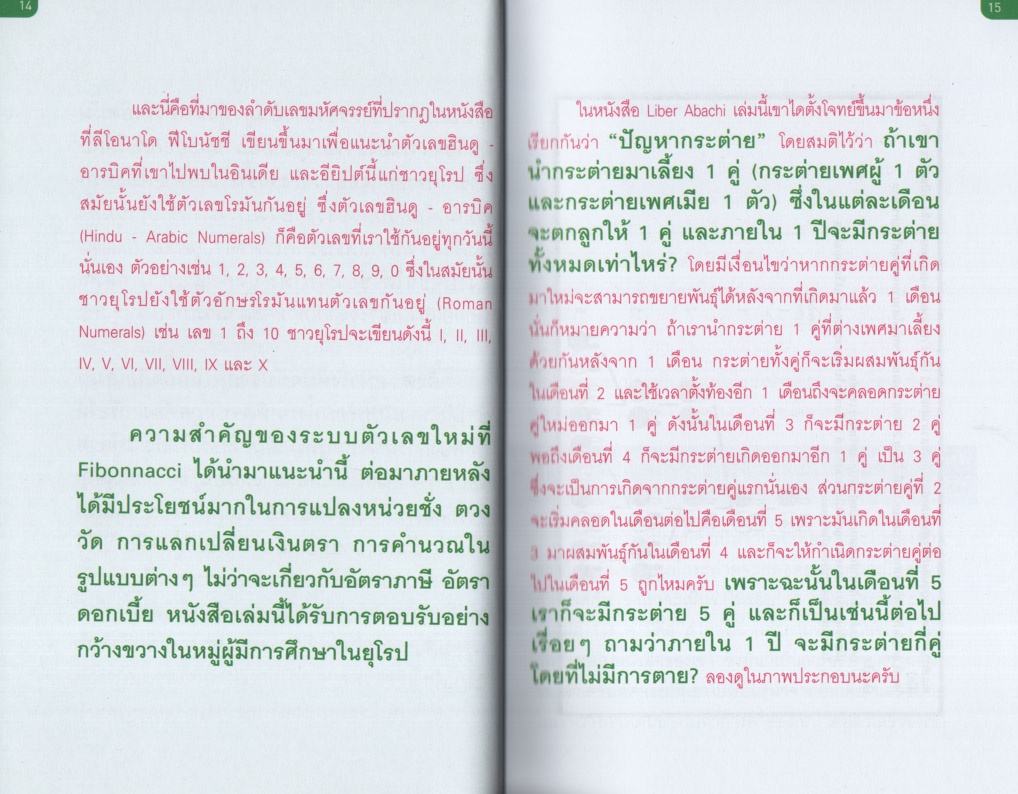 14
และนี่คือที่มาของลำดับเลขมหัศจรรย์ที่ปรากฏในหนังสือ
ที่ลีโอนาโด ฟีโบนัชชี เขียนขึ้นมาเพื่อแนะนำตัวเลขฮินดู -
อารบิคที่เขาไปพบในอินเดีย และอียิปต์นี้แก่ชาวยุโรป ซึ่ง
สมัยนั้นยังใช้ตัวเลขโรมันกันอยู่ ซึ่งตัวเลขฮินดู - อารบิค
(Hindu - Arabic Numerals) ก็คือตัวเลขที่เราใช้กันอยู่ทุกวันนี้
นั่นเอง ตัวอย่างเช่น 1, 2, 3, 4, 5, 6, 7, 8, 9, 0 ซึ่งในสมัยนั้น
ชาวยุโรปยังใช้ตัวอักษรโรมันแทนตัวเลขกันอยู่ (Roman
Numerals) เช่น เลข 1 ถึง 10 ชาวยุโรปจะเขียนดังนี้ I, II, III,
IV, V, VI, VII, VIII, IX และ X
ความสำคัญของระบบตัวเลขใหม่ที่
Fibonnacci ได้นำมาแนะนำนี้ ต่อมาภายหลัง
ได้มีประโยชน์มากในการแปลงหน่วยชั่ง ตวง
วัด การแลกเปลี่ยนเงินตรา การคำนวณใน
รูปแบบต่างๆ ไม่ว่าจะเกี่ยวกับอัตราภาษี อัตรา
ดอกเบี้ย หนังสือเล่มนี้ได้รับการตอบรับอย่าง
กว้างขวางในหมู่ผู้มีการศึกษาในยุโรป
15
ในหนังสือ Liber Abachi เล่มนี้เขาได้ตั้งโจทย์ขึ้นมาข้อหนึ่ง
เรียกกันว่า “ปัญหากระต่าย” โดยสมติไว้ว่า ถ้าเขา
นำกระต่ายมาเลี้ยง 1 คู่ (กระต่ายเพศผู้ 1 ตัว
และกระต่ายเพศเมีย 1 ตัว) ซึ่งในแต่ละเดือน
จะตกลูกให้ 1 คู่ และภายใน 1 ปีจะมีกระต่าย
ทั้งหมดเท่าไหร่? โดยมีเงื่อนไขว่าหากกระต่ายคู่ที่เกิด
มาใหม่จะสามารถขยายพันธุ์ได้หลังจากที่เกิดมาแล้ว 1 เดือน
นั่นก็หมายความว่า ถ้าเรานำกระต่าย 1 คู่ที่ต่างเพศมาเลี้ยง
ด้วยกันหลังจาก 1 เดือน กระต่ายทั้งคู่ก็จะเริ่มผสมพันธุ์กัน
ในเดือนที่ 2 และใช้เวลาตั้งท้องอีก 1 เดือนถึงจะคลอดกระต่าย
คู่ใหม่ออกมา 1 คู่ ดังนั้นในเดือนที่ 3 ก็จะมีกระต่าย 2 คู่
พอถึงเดือนที่ 4 ก็จะมีกระต่ายเกิดออกมาอีก 1 คู่ เป็น 3 คู่
ซึ่งจะเป็นการเกิดจากกระต่ายคู่แรกนั่นเอง ส่วนกระต่ายคู่ที่ 2
จะเริ่มคลอดในเดือนต่อไปคือเดือนที่ 5 เพราะมันเกิดในเดือนที่
3 มาผสมพันธุ์กันในเดือนที่ 4 และก็จะให้กำเนิดกระต่ายคู่ต่อ
ไปในเดือนที่ 5 ถูกไหมครับ เพราะฉะนั้นในเดือนที่ 5
เราก็จะมีกระต่าย 5 คู่ และก็เป็นเช่นนี้ต่อไป
เรื่อยๆ ถามว่าภายใน 1 ปี จะมีกระต่ายกี่คู่
โดยที่ไม่มีการตาย? ลองดูในภาพประกอบนะครับ